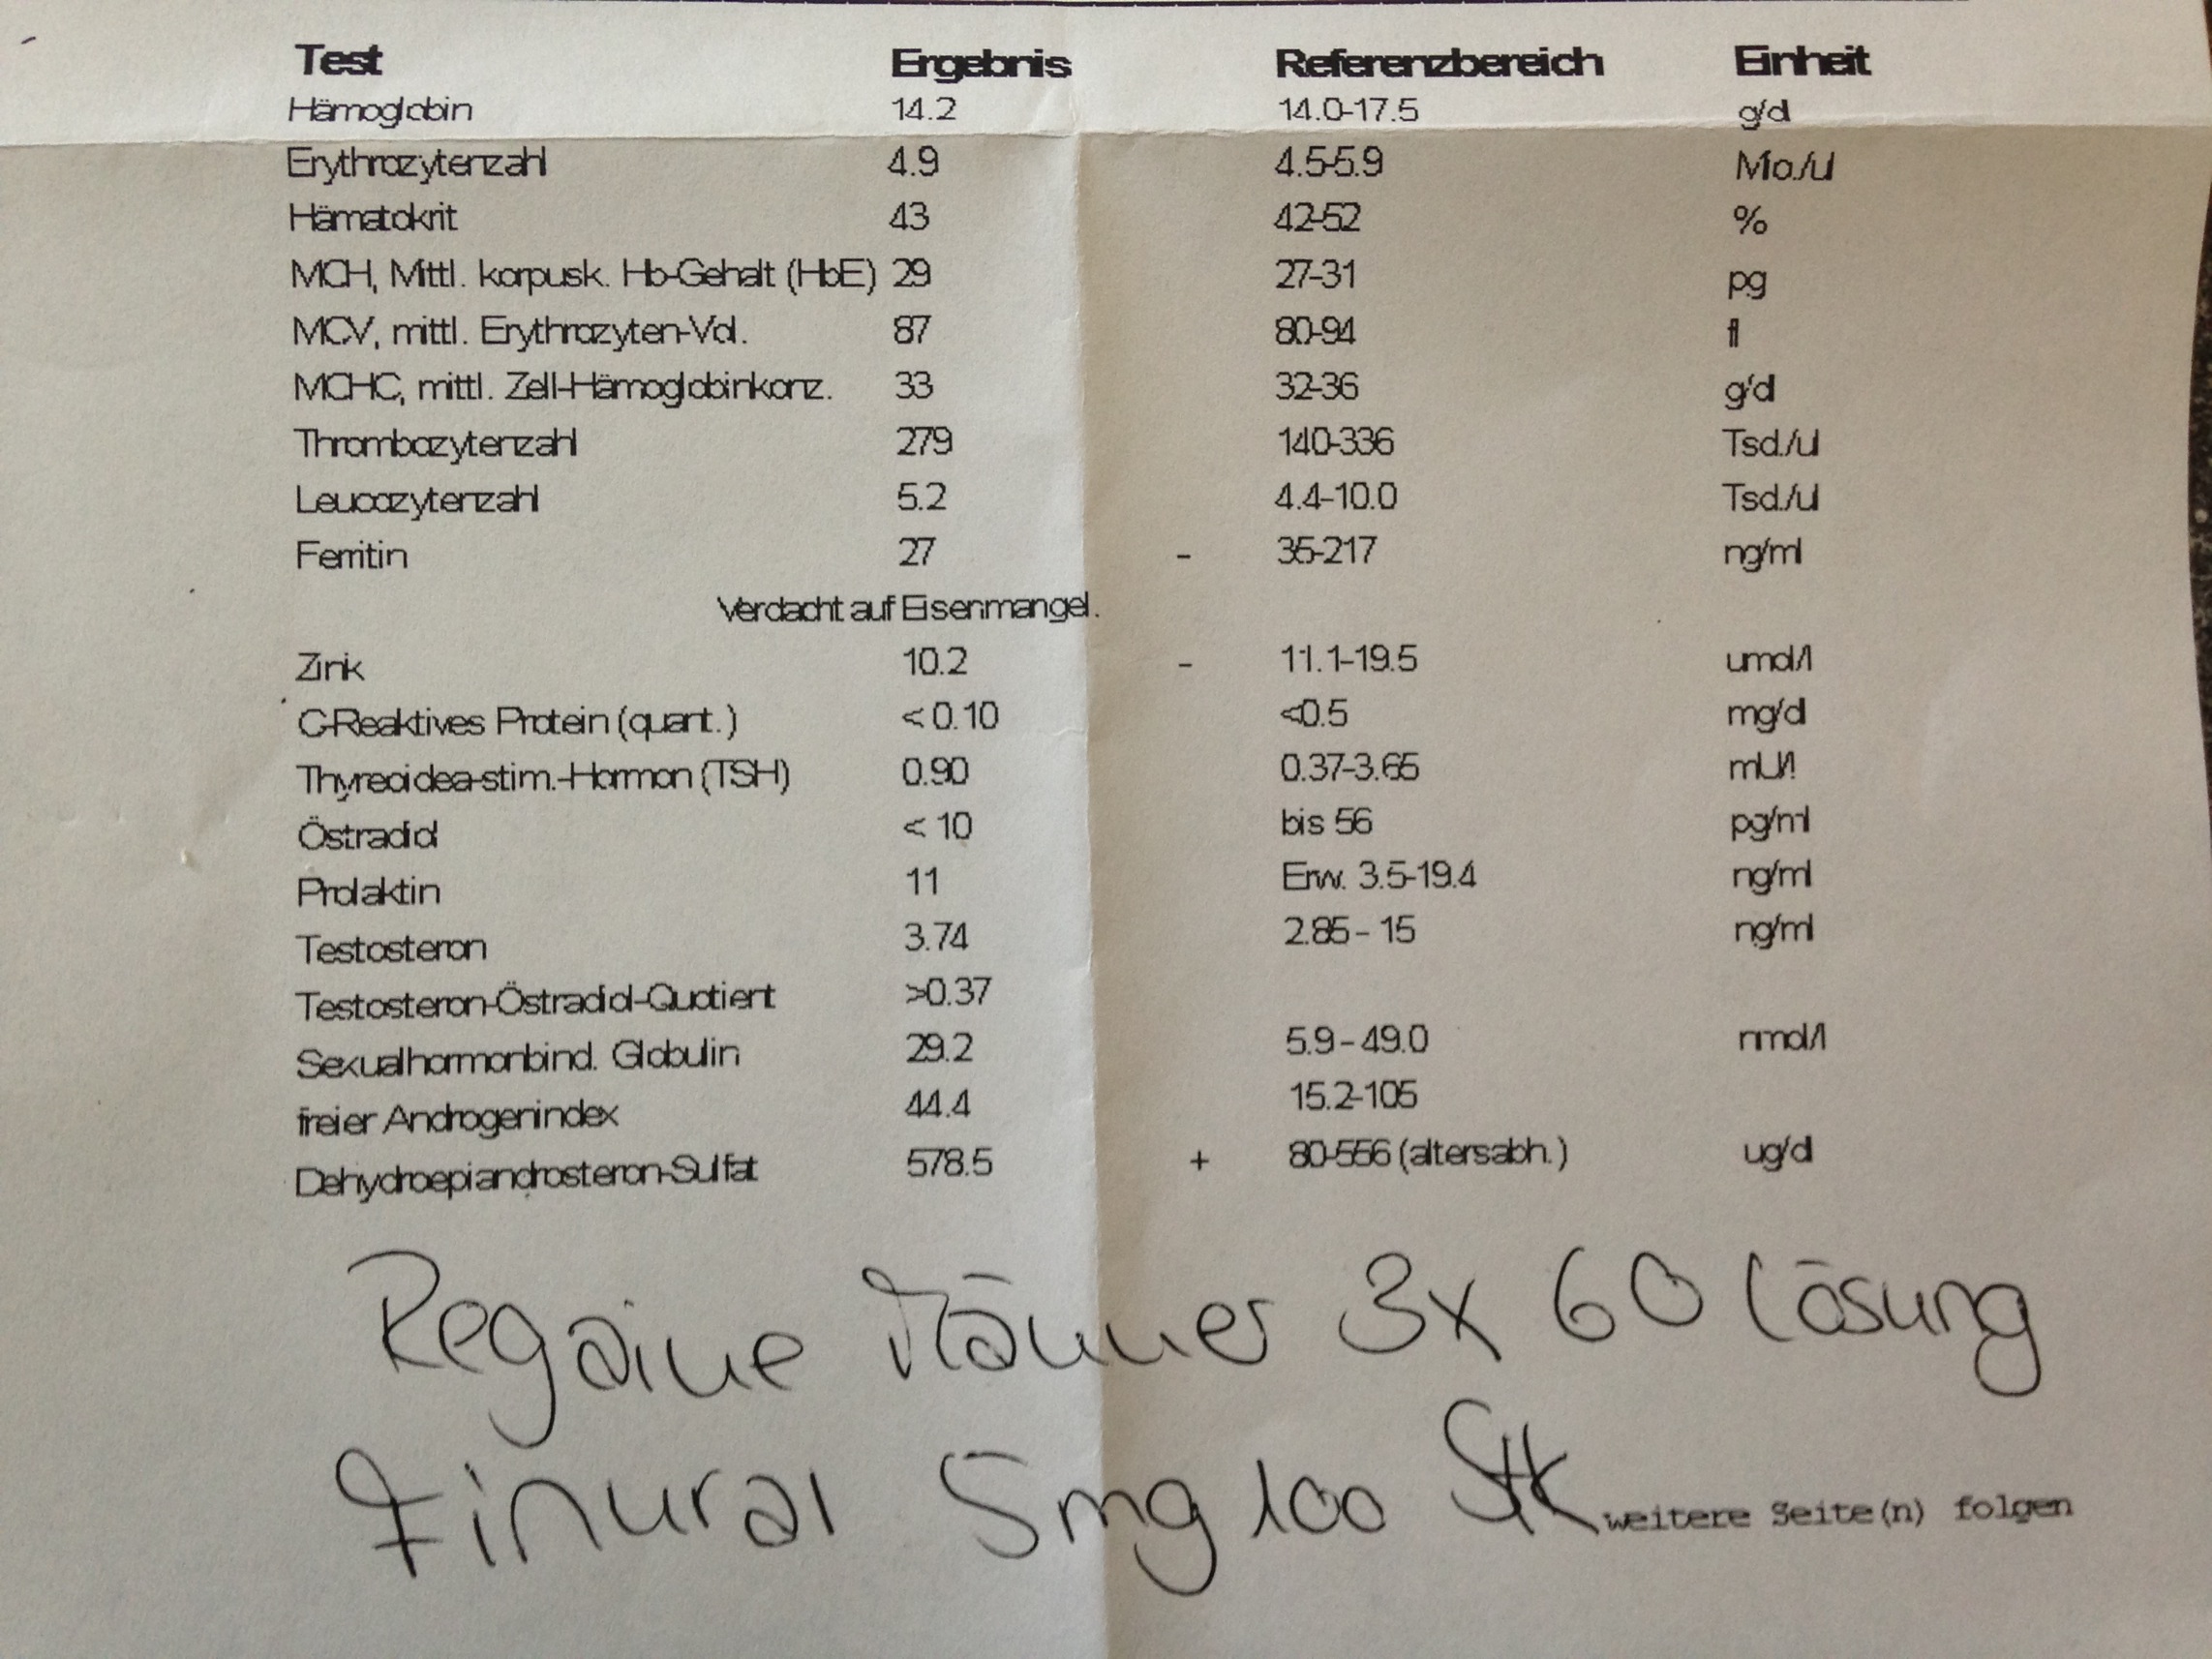 Test Ergebnis Referenzbereich Einheit
Hämoglobin 14.2 14.0-17.5 g/dl
Erythrozytenzahl 4.9 4.5-5.9 Mio./ul
Hämatokrit 43 42-52 %
MCH, Mittl. korpusk. Hb-Gehalt (HbE) 29 27-31 pg
MCV, mittl. Erythrozyten-Vol. 87 80-94 fl
MCHC, mittl. Zell-Hämoglobinkonz. 33 32-36 g/dl
Thrombozytenzahl 279 140-336 Tsd./ul
Leucozytenzahl 5.2 4.4-10.0 Tsd./ul
Ferritin 27 - 35-217 ng/ml
Verdacht auf Eisenmangel.
Zink 10.2 - 11.1-19.5 umol/l
C-Reaktives Protein (quant.) < 0.10 <0.5 mg/dl
Thyreoidea-stim.-Hormon (TSH) 0.90 0.37-3.65 mU/l
Östradiol < 10 bis 56 pg/ml
Prolaktin 11 Erw. 3.5-19.4 ng/ml
Testosteron 3.74 2.85 - 15 ng/ml
Testosteron-Östradiol-Quotient >0.37
Sexualhormonbind. Globulin 29.2 5.9 - 49.0 nmol/l
freier Androgenindex 44.4 15.2-105
Dehydroepiandrosteron-Sulfat 578.5 + 80-556 (altersabh.) ug/dl
Regaine Männer 3x 60 Lösung
Finural 5mg 100 Stk
weitere Seite(n) folgen